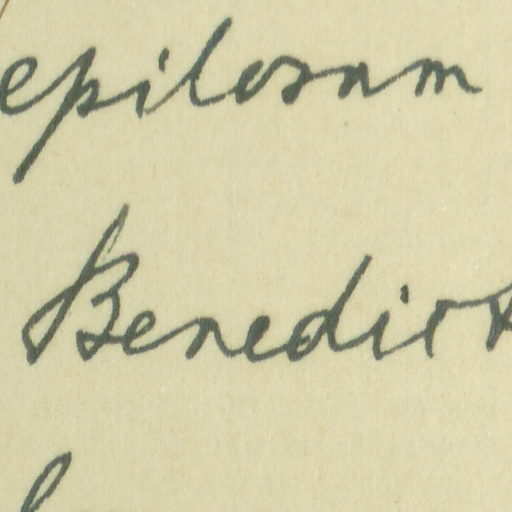 epilosum
Benedict